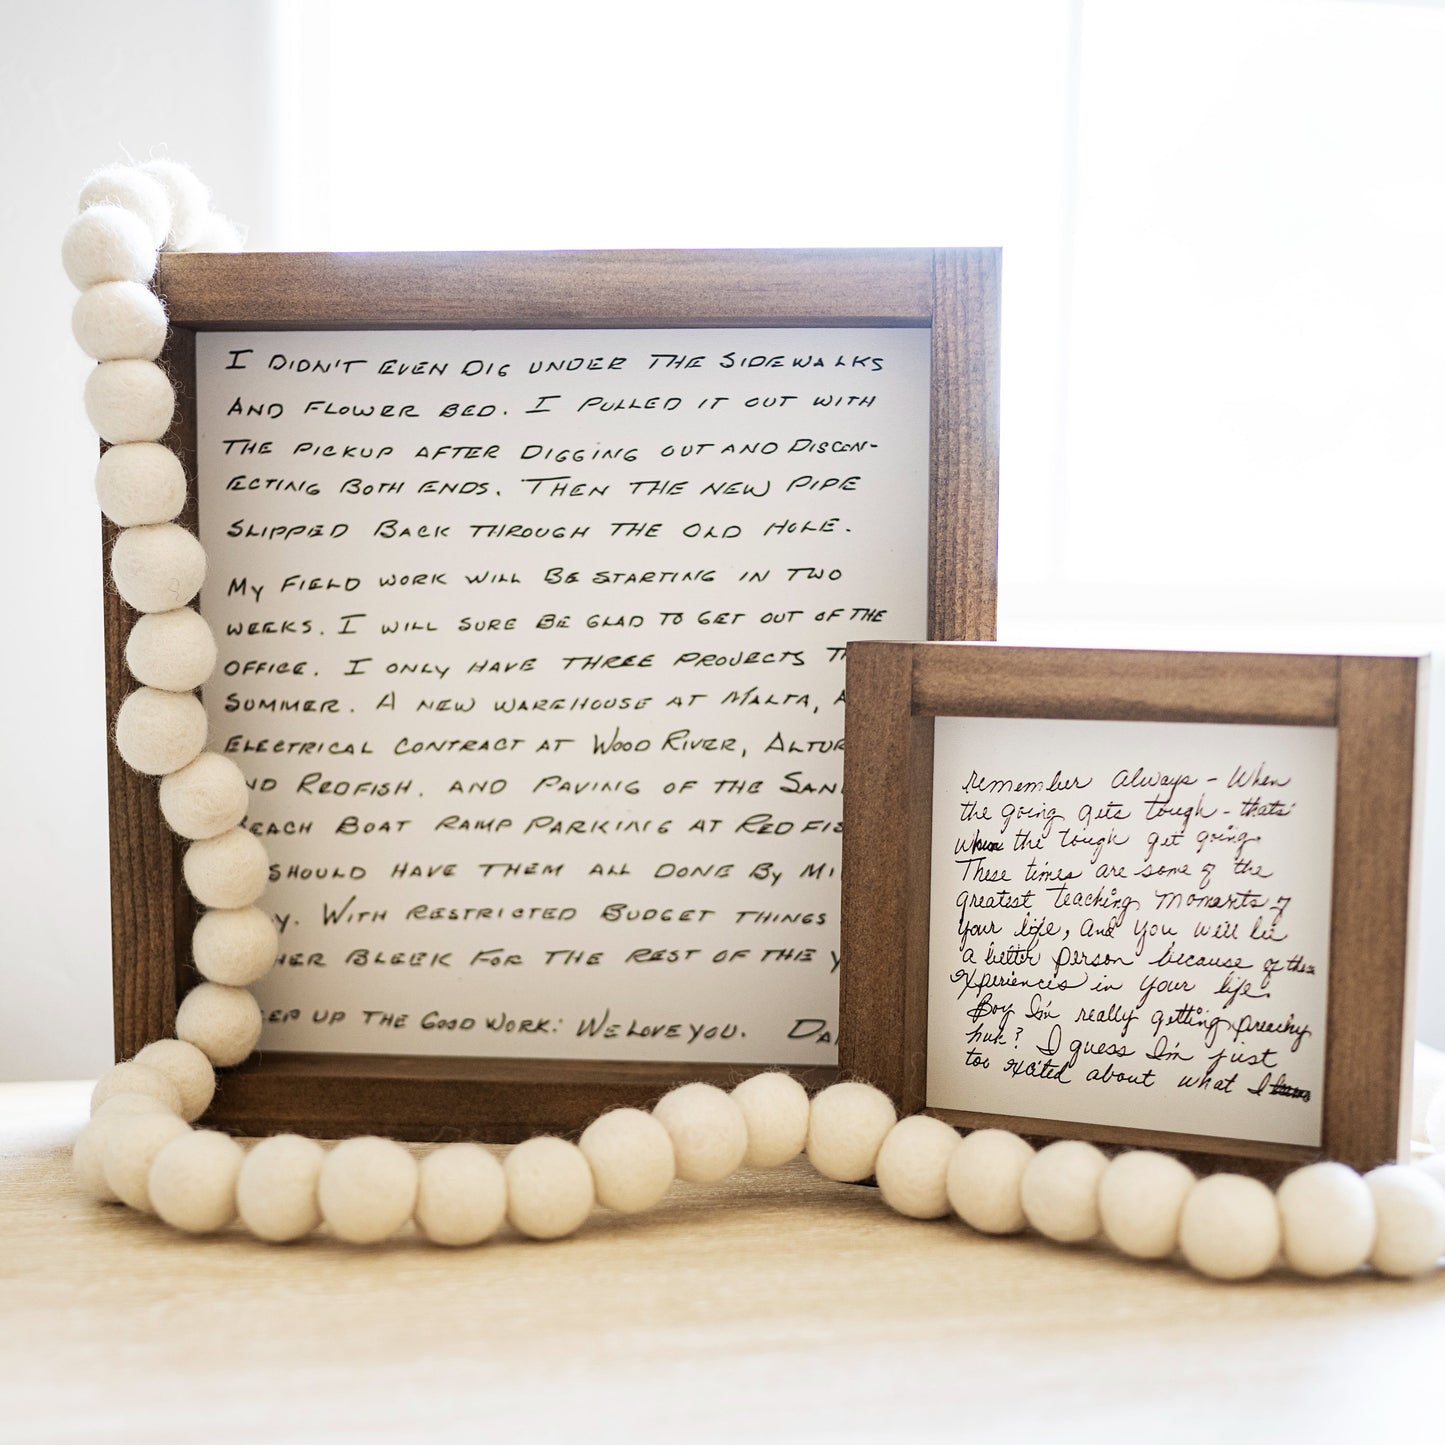 I DIDN'T EVEN DIG UNDER THE SIDEWALKS
AND FLOWER BED. I PULLED IT OUT WITH
THE PICKUP AFTER DIGGING OUT AND DISCON-
ECTING BOTH ENDS. THEN THE NEW PIPE
SLIPPED BACK THROUGH THE OLD HOLE.
MY FIELD WORK WILL BE STARTING IN TWO
WEEKS. I WILL SURE BE GLAD TO GET OUT OF THE
OFFICE. I ONLY HAVE THREE PROJECTS
SUMMER. A NEW WAREHOUSE AT MALTA,
ELECTRICAL CONTRACT AT WOOD RIVER, ALTUR
ND REDFISH. AND PAVING OF THE SAN
EACH BOAT RAMP PARKING AT REDFIS
SHOULD HAVE THEM ALL DONE BY MI
Y. WITH RESTRICTED BUDGET THINGS
HER BLEEK FOR THE REST OF THE Y
EP UP THE GOOD WORK: WE LOVE YOU. DA
remember always - When
the going gets tough - thats'
when the tough get going.
These times are some of the
greatest teaching moments of
your life, and you will be
a better person because of these
experiences in your life.
Boy I'm really getting preachy
huh? I guess I'm just
too excited about what I